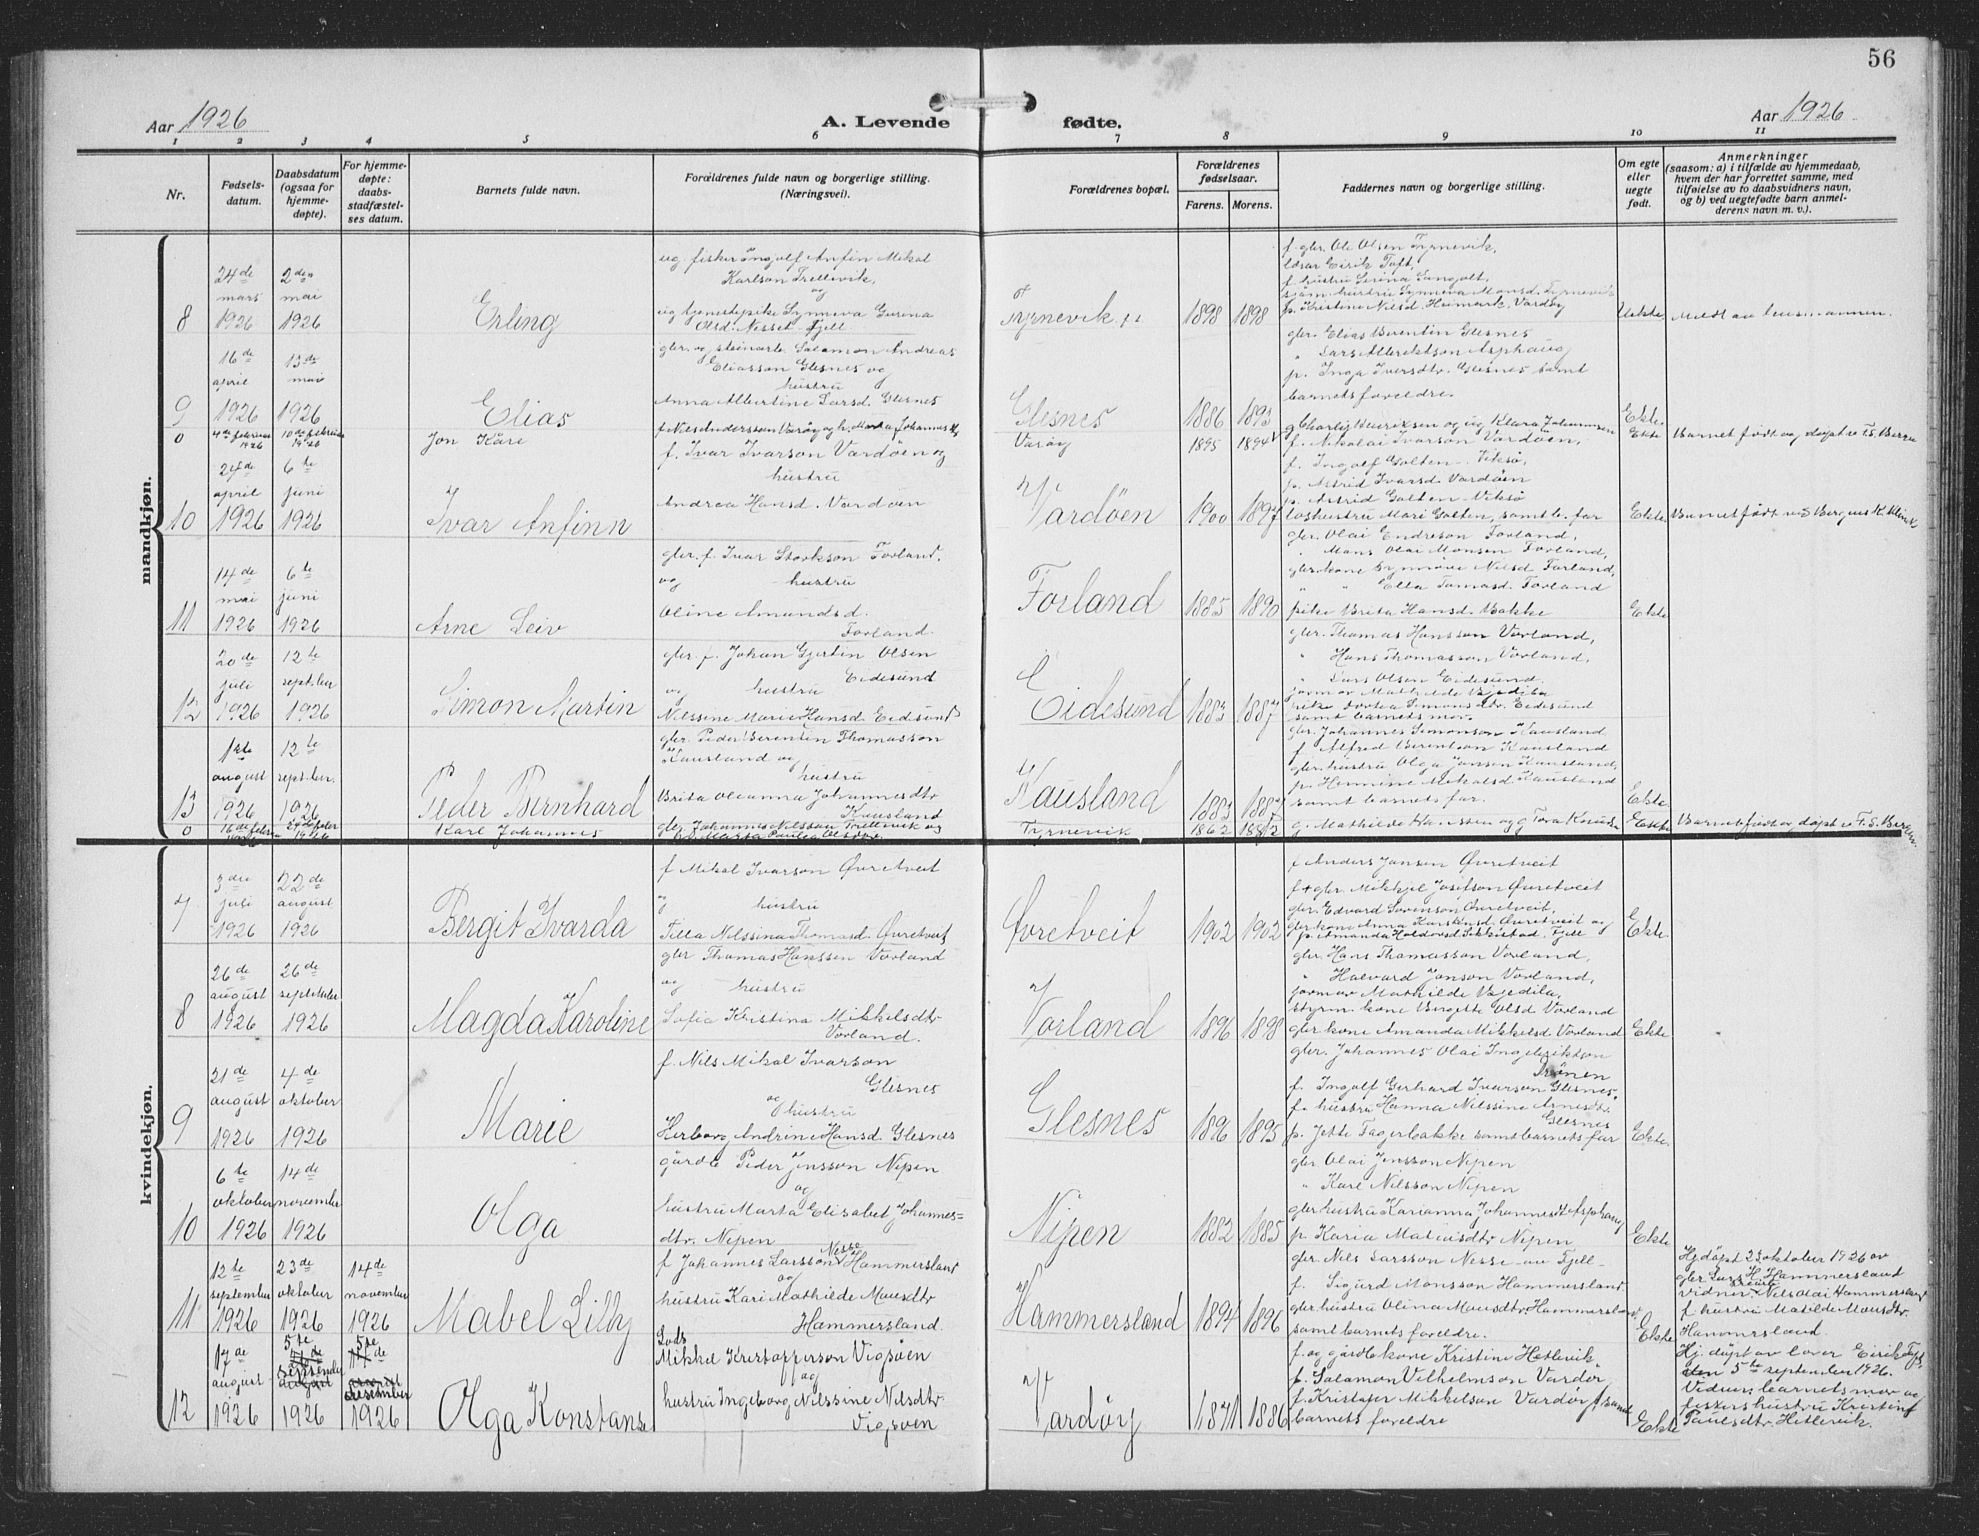 56
Aar 1926
A. Levende
fødte.
Aar 1926
1 2 3 4 5 6 7 8 9 10 11
Nr.
Fødsels-
datum.
Daabsdatum
(ogsaa for
hjemme-
døpte).
For hjemme-
døpte:
daabs-
stadfæstel-
ses datum.
Barnets fulde navn.
Forældrenes fulde navn og borgerlige stilling.
(Næringsvei).
Forældrenes bopæl.
Forældrenes
fødselsaar.
Farens. Morens.
Faddernes navn og borgerlige stilling.
Om egte
eller
uegte
født.
Anmerkninger
(saasom: a) i tilfælde av hjemmedaab,
hvem der har forrettet samme, med
tilføielse av to daabsvidners navn,
og b) ved uegtefødte barn anmel-
derens navn m. v.).
mandkjøn.
8
24de
mars
1926
2den
mai
1926
Erling
ug. fisker Ingolf Anfin Mikal
Karlson Trellevik,
og
ug tjenestepike Synneva Gurina
Olsd. Nesse - Fjell
Tyrnevik
1898 1898
f. gbr. Ole Olsen Tyrnevik,
lærar Eirik Toft,
p. Kristine Nilsd. Heimark. Vardøy
Uekte
Meldt av lensmannen.
9
16de
april
1926
13de
mai
1926
Elias
gbr. og steinarb. Salamon Andreas
Eliasson Glesnes og
hustru
Anna Albertine Larsd. Glesnes
Glesnes
1886 1893
gbr. Elias Berentin Glesnes
" Lars Albriktson Asphaug
p. Inga Iversdtr. Glesnes samt
barnets foreldre.
Ekte
0
4de februar
1926
10de februar
1926
Jon Kåre
Varøy
1895
Ekte
Barnet født og døpt v. F.S. Bergen
10
24de
april
1926
6te
juni
1926
Ivar Anfinn
f. Ivar Ivarson Vardøen og
hustru
Andrea Hansd. Vardøen
Vardøen
1900 1897
f. Nikolai Ivarson Vardøen,
f. Ingolf Golten - Viksø,
p. Astrid Ivarsd. Vardøen
p. Astrid Golten - Viksø
loshustru Mari Golten, samt b. far
Ekte
11
14de
mai
1926
6te
juni
1926
Arne Leiv
gbr. f. Ivar Storkson Forland.
og hustru
Oline Amundsd.
Forland.
Forland
1885 1890
gbr. Olai Endreson Forland,
" Mons Olai Monsen Forland,
gbrkone Synnöve Nilsd Forland,
" Ella Tomasd. Forland
pike Brita Hansd. Bakke
Ekte
12
20de
juli
1926
12te
septbr
1926
Simon Martin
gbr. f. Johan Gjertin Olsen
Eidesund
og hustru
Nilssine Marie Hansd. Eidsund
Eidesund
1883 1887
gbr. Thomas Hansson Vorland,
" Hans Thomasson Vorland,
" Lars Olsen Eidesund
jormor Mathilde Vejedila
samt barnets mor.
13
1ste
august
1926
12te
septbr.
1926
Peder Bernhard
gbr. Peder Berentin Thomasson
Kausland og
hustru
Brita Oleanna Johannesdtr
Kausland
Kausland
1883
gbr. Johannes Simonson Kausland
f. Alfred Berentson Kausland
gbr.hustru Olga Jonsen Kausland,
p. Hermine Mikalsd Kausland
samt barnets far.
Ekte
0
Karl Johannes
gbr Johannes Nilsson Trellevik og
Tyrnevik
1862
Ekte
Barnet født og døpt v. F. S. Bergen.
kvindekjøn.
7
3die
juli
1926
22de
august
1926
Bergit Ivarda
f Mikal Ivarson Øvretveit
og hustru
Tilla Nilssina Thomasd. Øvretveit
Øvretveit
1902 1902
f Anders Jansen Øvretveit
f + gbr. Mikkjel Josefson Øvretveit
gbr. Edvard Sørenson Øvretveit,
gbrkone Anna Karstensd. Øvretveit og
Ekte.
8
26de
august
1926
26de
september
1926
Magda Karoline
gbr Thomas Hanssen Vorland
og hustru
Sofia Kristina Mikkelsdtr
Vorland.
Vorland
1896 1898
gbr. Hans Thomasson Vorland,
" Halvard Jonson Vorland,
jormor Mathilde Vejedila,
styrm. kone Bergitte Olsd Vorland
gbr kone Amanda Mikkelsd. Vorland
Ekte
9
21de
august
1926
4de
oktober
1926
Marie
f. Nils Mikal Ivarson
Glesnes
og hustru
Herborg Andrine Hansd. Glesnes
Glesnes
1896 1895
gbr. Johannes Olai Ingebriktson
Trönen
f. Ingolf Gerhard Ivarson Glesnes,
f. hustru Hanna Nilssine Arnesdtr
Glesnes
p. Jette Fagerbakke samt barnets far
Ekte.
10
6te
oktober
1926
14de
november
1926
Olga
gårdb Peder Jensson Nipen
og
hustru Marta Elisabet Johannes=
dtr. Nipen
Nipen
1882 1885
gbr Olai Jensson Nipen
" Karl Nilsson Nipen
gbr hustru Karianna Johannesdt Asphaug
p. Karia Matiisdtr Nipen
Ekte
11
12te
september
1926
23de
oktober
1926
14de
november
1926
Mabel Lilly
f Johannes Larsson Nesse Hammersland
og
hustru Kari Mathilde Monsdtr
Hammersland.
Hammersland
1894 1896
gbr. Nils Larsson Nesse - av Fjell -
f. Sigurd Monsson Hammersland
gbr hustru Olina Monsdtr Hammersland.
samt barnets foreldre.
Ekte
Hj.døpt 23 oktober 1926 av
gbr Lars H. Hammersland
vidner Nils Olai Hammersland
f hustru Matilde Monsdtr
Hammersland.
12
17de
august
1926
5te
september
1926
5te
desember
1926
Olga Konstanse
Lods
Mikkel Kristofferson Vigsøen
og
hustru Ingeborg Nilssine Nilsdtr
Vigsøen
Vardøy
1871 1886
f. og gårdbkone Kristine Hetlevik,
f. Salamon Vilhelmson Vardøy
f. Kristofer Mikkelson Vardøy, samt
barnets foreldre
Ekte
Hj. døpt av lærer Eirik Toft,
den 5te september 1926.
Vidner: barnets mor og
fiskers hustru Kristine
Paulsdtr. Hetlevik.